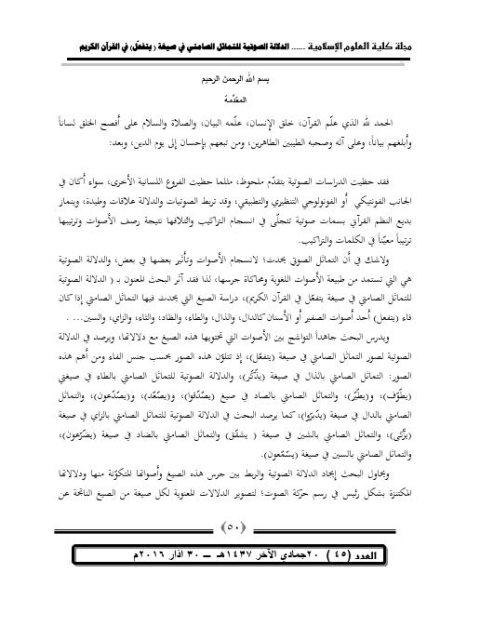 مجلة كلية العلوم الإسلامية ...... الدلالة الصوتية للتماثل الصامتي في صيغة ( يتفعّل) في القرآن الكريم
بسم الله الرحمن الرحيم
المقدّمة
الحمد لله الذي علّم القرآن، خلق الإنسان، علّمه البيان، والصلاة والسلام على أفصح الخلق لساناً
وأبلغهم بياناً، وعلى آله وصحبه الطيبين الطاهرين، ومن تبعهم بإحسان إلى يوم الدين، وبعد:
فقد حظيت الدراسات الصوتية بتقدّم ملحوظ، مثلما حظيت الفروع اللسانية الأخرى، سواء أكان في
الجانب الفونتيكي أو الفونولوجي التنظيري والتطبيقي، وقد تربط الصوتيات والدلالة علاقات وطيدة، ويمتاز
بديع النظم القرآني بسمات صوتية تتجلّى في انسجام التراكيب وائتلافها نتيجة رصف الأصوات وترتيبها
ترتيباً معيّناً في الكلمات والتراكيب.
ولاشك في أن التماثل الصوتي يحدث؛ لانسجام الأصوات وتأثير بعضها في بعض، والدلالة الصوتية
هي التي تستمد من طبيعة الأصوات اللغوية ومحاكاة جرسها، لذا فقد آثر البحث المعنون بـ ( الدلالة الصوتية
للتماثل الصامتي في صيغة يتفعّل في القرآن الكريم)، دراسة الصيغ التي يحدث فيها التماثل الصامتي إذا كان
فاء (يتفعل) أحد أصوات الصفير أو الأسنان كالدال، والذال، والطاء، والظاد، والثاء، والزاي، والسين... .
ويدرس البحث جاهداً التواشج بين الأصوات التي تحتويها هذه الصيغ مع دلالاتها، ويرصد في الدلالة
الصوتية لصور التماثل الصامتي في صيغة (يتفعّل)، إذ تتلوّن هذه الصور بحسب جنس الفاء ومن أهم هذه
الصور: التماثل الصامتي بالذال في صيغة (يذّكّر)، والدلالة الصوتية للتماثل الصامتي بالطاء في صيغتي
(يطّوّف)، و(يطّيّر)، والتماثل الصامتي بالصاد في صيغ (يصّدّقوا)، و(يصّعّد)، و(يصّدّعون)، والتماثل
الصامتي بالدال في صيغة (يدّبّروا)، كما يرصد البحث في الدلالة الصوتية للتماثل الصامتي بالزاي في صيغة
(يزّكّى)، والتماثل الصامتي بالشين في صيغة ( يشقّق) والتماثل الصامتي بالضاد في صيغة (يضّرّعون)،
والتماثل الصامتي بالسين في صيغة (يسّمّعون).
ويحاول البحث إيجاد الدلالة الصوتية والربط بين جرس هذه الصيغ وأصواتها المتكوّنة منها ودلالاتها
المكتنزة بشكل رئيس في رسم حركة الصوت؛ لتصوير الدلالات المعنوية لكل صيغة من الصيغ الناتجة عن
﴿٥٠﴾
العدد (٤٥) ٢٠جمادي الآخر ١٤٣٧هـ – ٣٠ اذار ٢٠١٦م